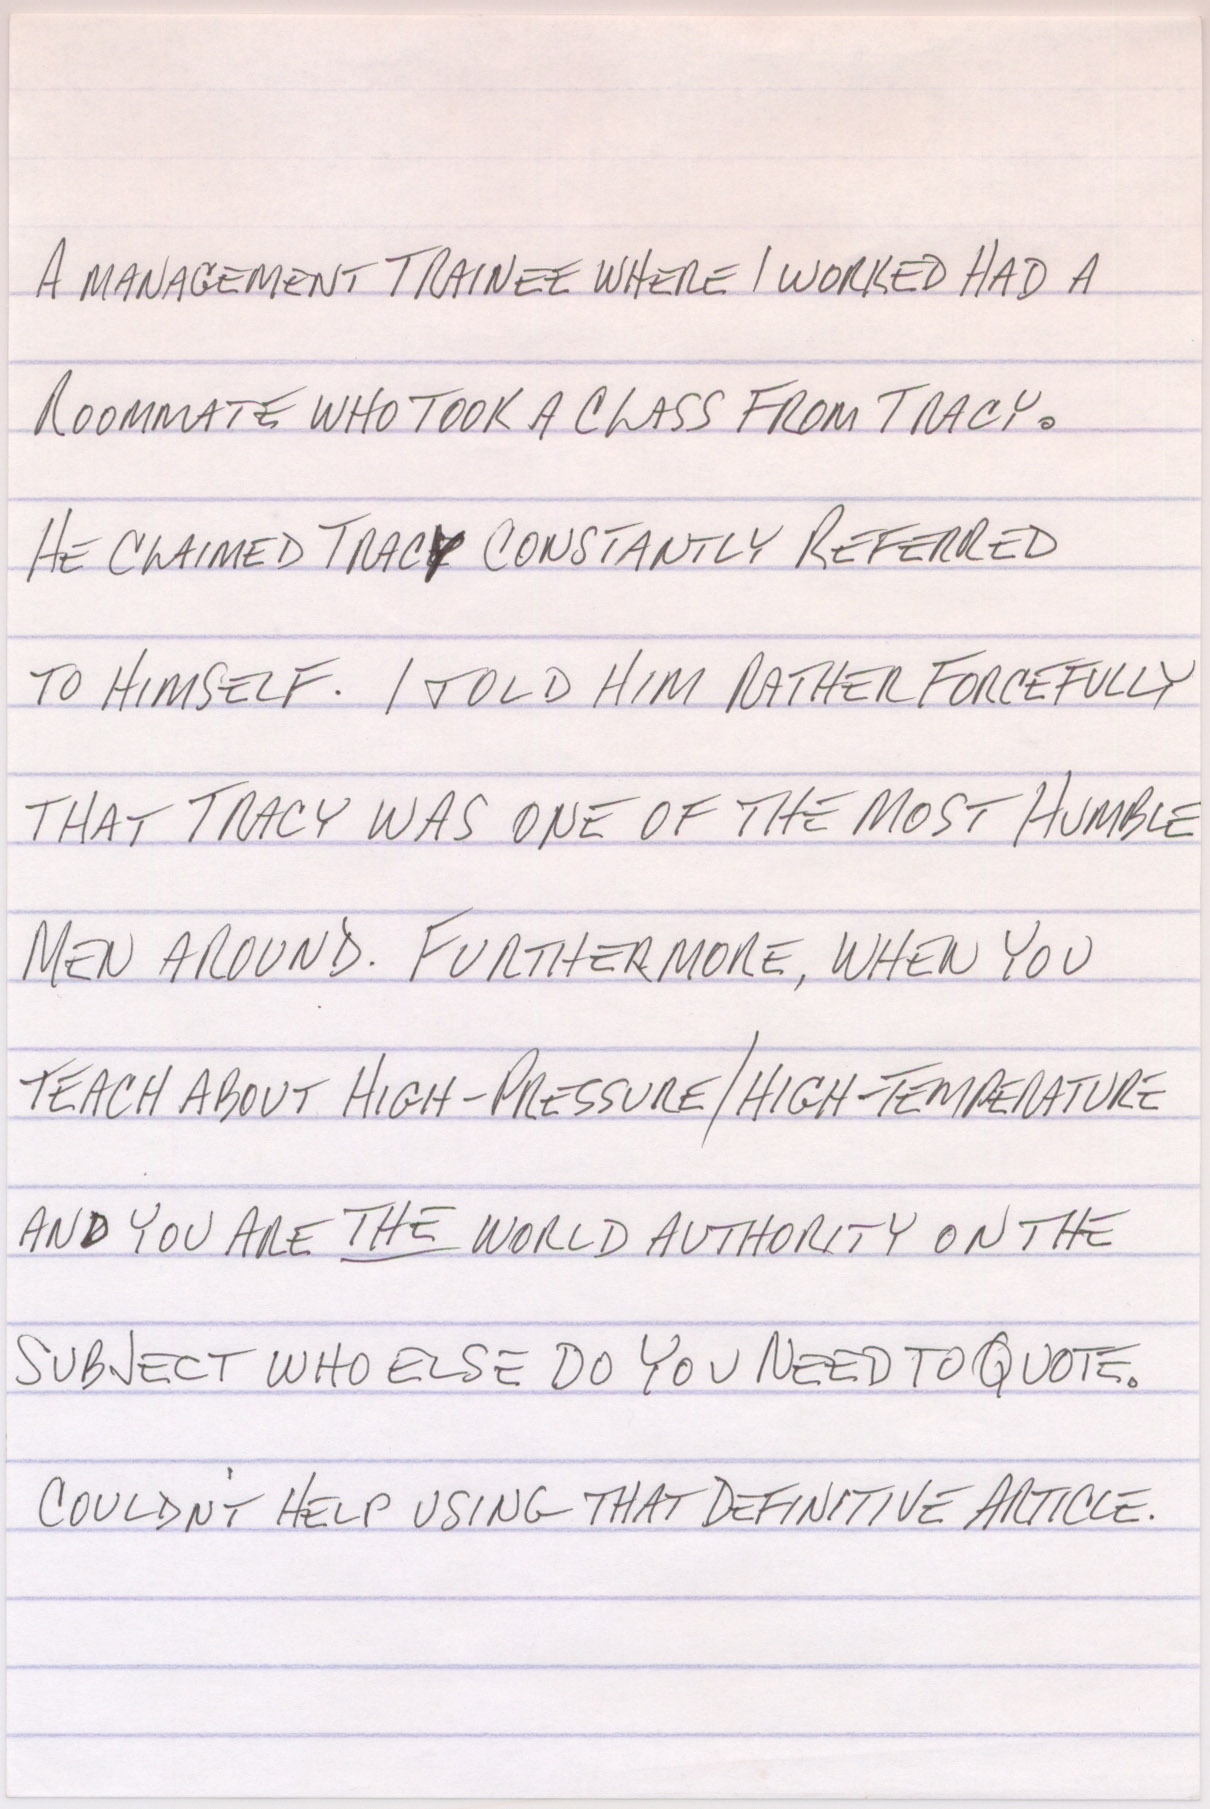 A MANAGEMENT TRAINEE WHERE I WORKED HAD A
ROOMMATE WHO TOOK A CLASS FROM TRACY.
HE CLAIMED TRACY CONSTANTLY REFERRED
TO HIMSELF. I TOLD HIM RATHER FORCEFULLY
THAT TRACY WAS ONE OF THE MOST HUMBLE
MEN AROUND. FURTHERMORE, WHEN YOU
TEACH ABOUT HIGH-PRESSURE/HIGH-TEMPERATURE
AND YOU ARE THE WORLD AUTHORITY ON THE
SUBJECT WHO ELSE DO YOU NEED TO QUOTE.
COULDN'T HELP USING THAT DEFINITIVE ARTICLE.